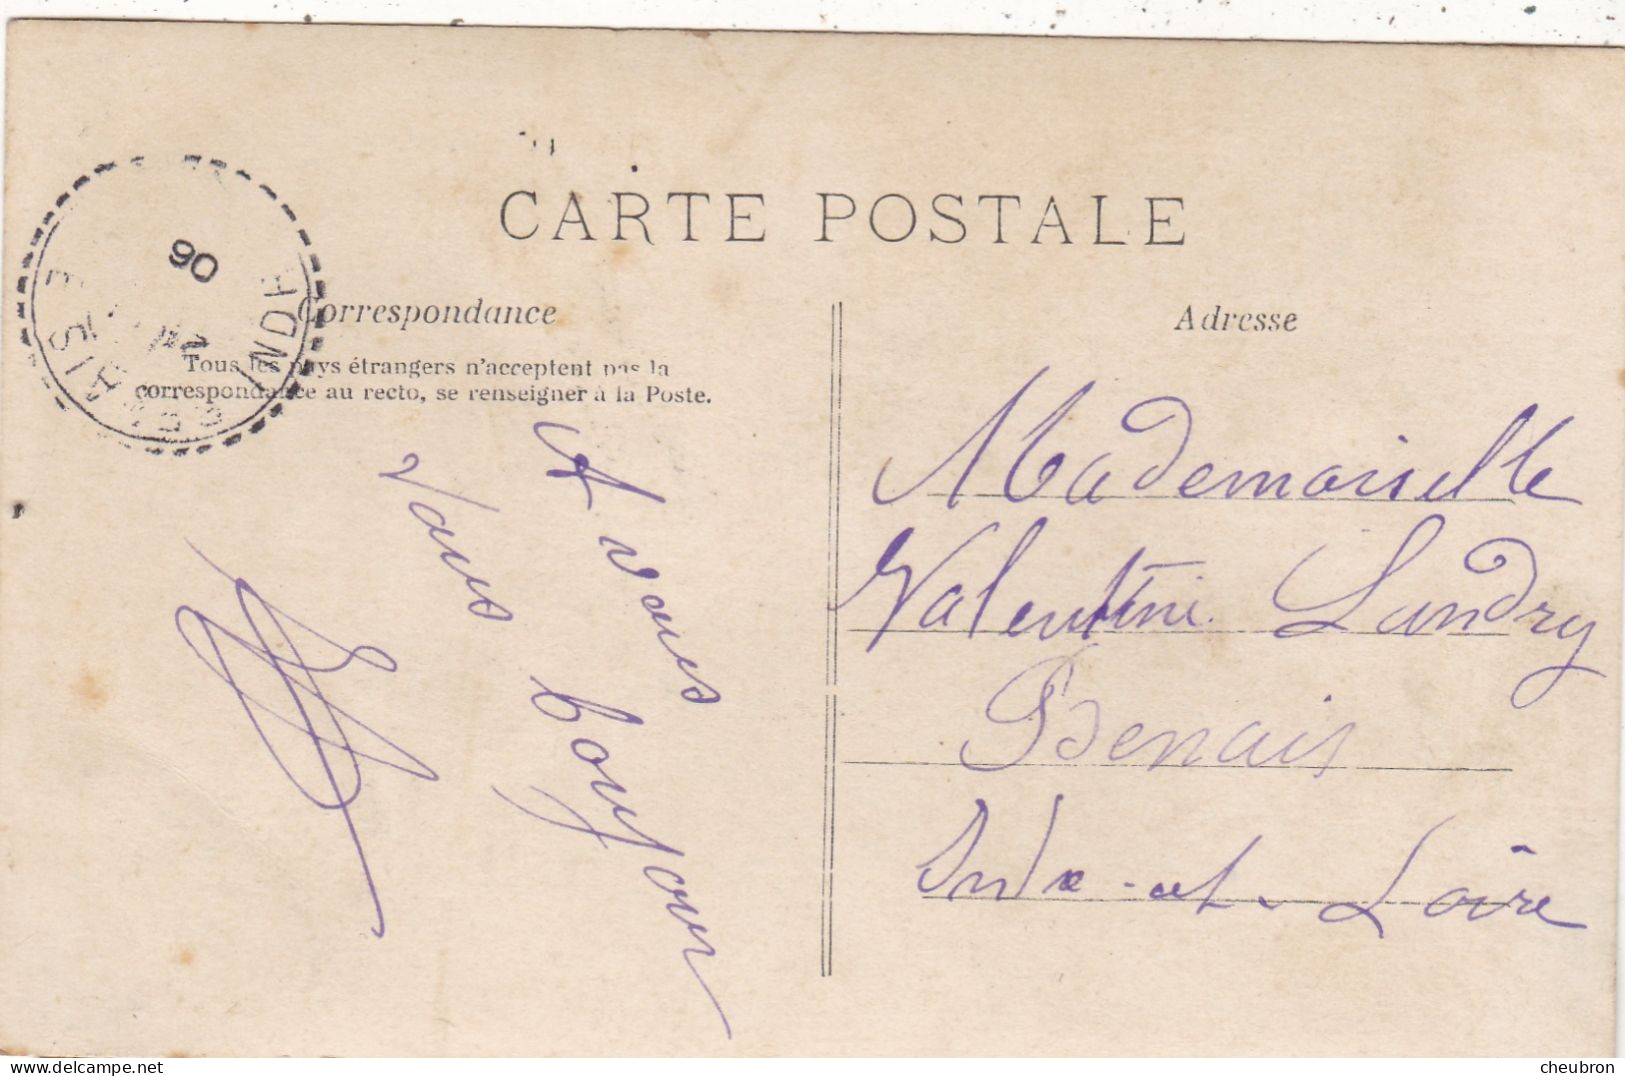 CARTE POSTALE
Correspondance
Tous les pays étrangers n'acceptent pas la
correspondance au recto, se renseigner à la Poste.
Adresse
06
A vous
bonjour
Mademoiselle
Valentine Landry
Benais
Indre-et-Loire
cheubron.com